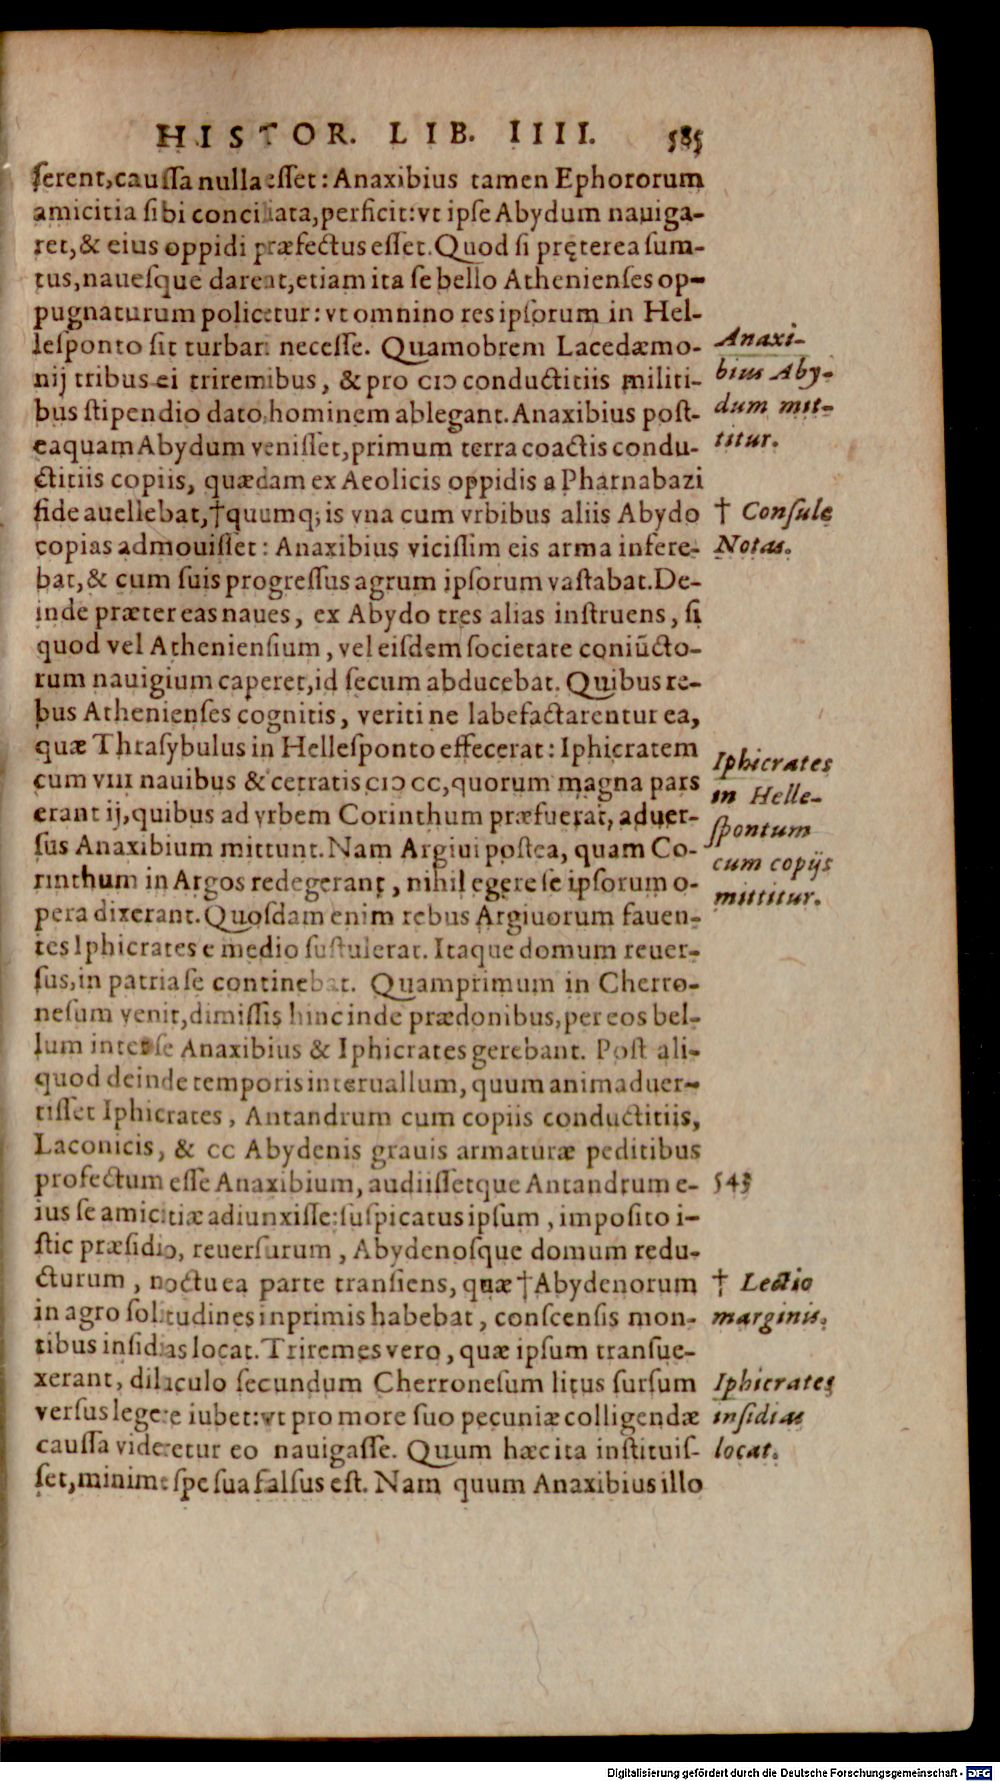 HISTOR. LIB. IIII. 585
ſerent, cauſſa nulla eſſet: Anaxibius tamen Ephororum
amicitia ſibi conciliata, perficit: vt ipſe Abydum nauiga-
ret, & eius oppidi præfectus eſſet. Quod ſi pręterea ſum-
tus, naueſque darent, etiam ita ſe bello Athenienſes op-
pugnaturum policetur: vt omnino res ipſorum in Hel-
leſponto ſit turbari neceſſe. Quamobrem Lacedæmo-
nij tribus ei triremibus, & pro cIↄ conductitiis militi-
bus ſtipendio dato, hominem ablegant. Anaxibius poſt-
eaquam Abydum veniſſet, primum terra coactis condu-
ctitiis copiis, quædam ex Aeolicis oppidis a Pharnabazi
fide auellebat, † quumq; is vna cum vrbibus aliis Abydo
copias admouiſſet: Anaxibius viciſſim eis arma infere-
bat, & cum ſuis progreſſus agrum ipſorum vaſtabat. De-
inde præter eas naues, ex Abydo tres alias inſtruens, ſi
quod vel Athenienſium, vel eiſdem ſocietate coniũcto-
rum nauigium caperet, id ſecum abducebat. Quibus re-
bus Athenienſes cognitis, veriti ne labefactarentur ea,
quæ Thraſybulus in Helleſponto effecerat: Iphicratem
cum VIII nauibus & cetratis cIↄ cc, quorum magna pars
erant ij, quibus ad vrbem Corinthum præfuerat, aduer-
ſus Anaxibium mittunt. Nam Argiui poſtea, quam Co-
rinthum in Argos redegerant, nihil egere ſe ipſorum o-
pera dixerant. Quoſdam enim rebus Argiuorum fauen-
tes Iphicrates e medio ſuſtulerat. Itaque domum reuer-
ſus, in patria ſe continebat. Quamprimum in Cherro-
neſum venit, dimiſſis hinc inde prædonibus, per eos bel-
lum inter ſe Anaxibius & Iphicrates gerebant. Poſt ali-
quod deinde temporis interuallum, quum animaduer-
tiſſet Iphicrates, Antandrum cum copiis conductitiis,
Laconicis, & cc Abydenis grauis armaturæ peditibus
profectum eſſe Anaxibium, audiiſſetque Antandrum e-
ius ſe amicitiæ adiunxiſſe: ſuſpicatus ipſum, impoſito i-
ſtic præſidio, reuerſurum, Abydenoſque domum redu-
cturum, noctu ea parte tranſiens, quæ † Abydenorum
in agro ſolitudines inprimis habebat, conſcenſis mon-
tibus inſidias locat. Triremes vero, quæ ipſum tranſue-
xerant, diluculo ſecundum Cherroneſum litus ſurſum
verſus legere iubet: vt pro more ſuo pecuniæ colligendæ
cauſſa videretur eo nauigaſſe. Quum hæc ita inſtituiſ-
ſet, minime ſpe ſua falſus eſt. Nam quum Anaxibius illo
Anaxi-
bius Aby-
dum mit-
titur.
† Conſule
Notas.
Iphicrates
in Helle-
ſpontum
cum copijs
mittitur.
543
† Lectio
marginis.
Iphicrates
inſidias
locat.
Digitalisierung gefördert durch die Deutsche Forschungsgemeinschaft - DFG